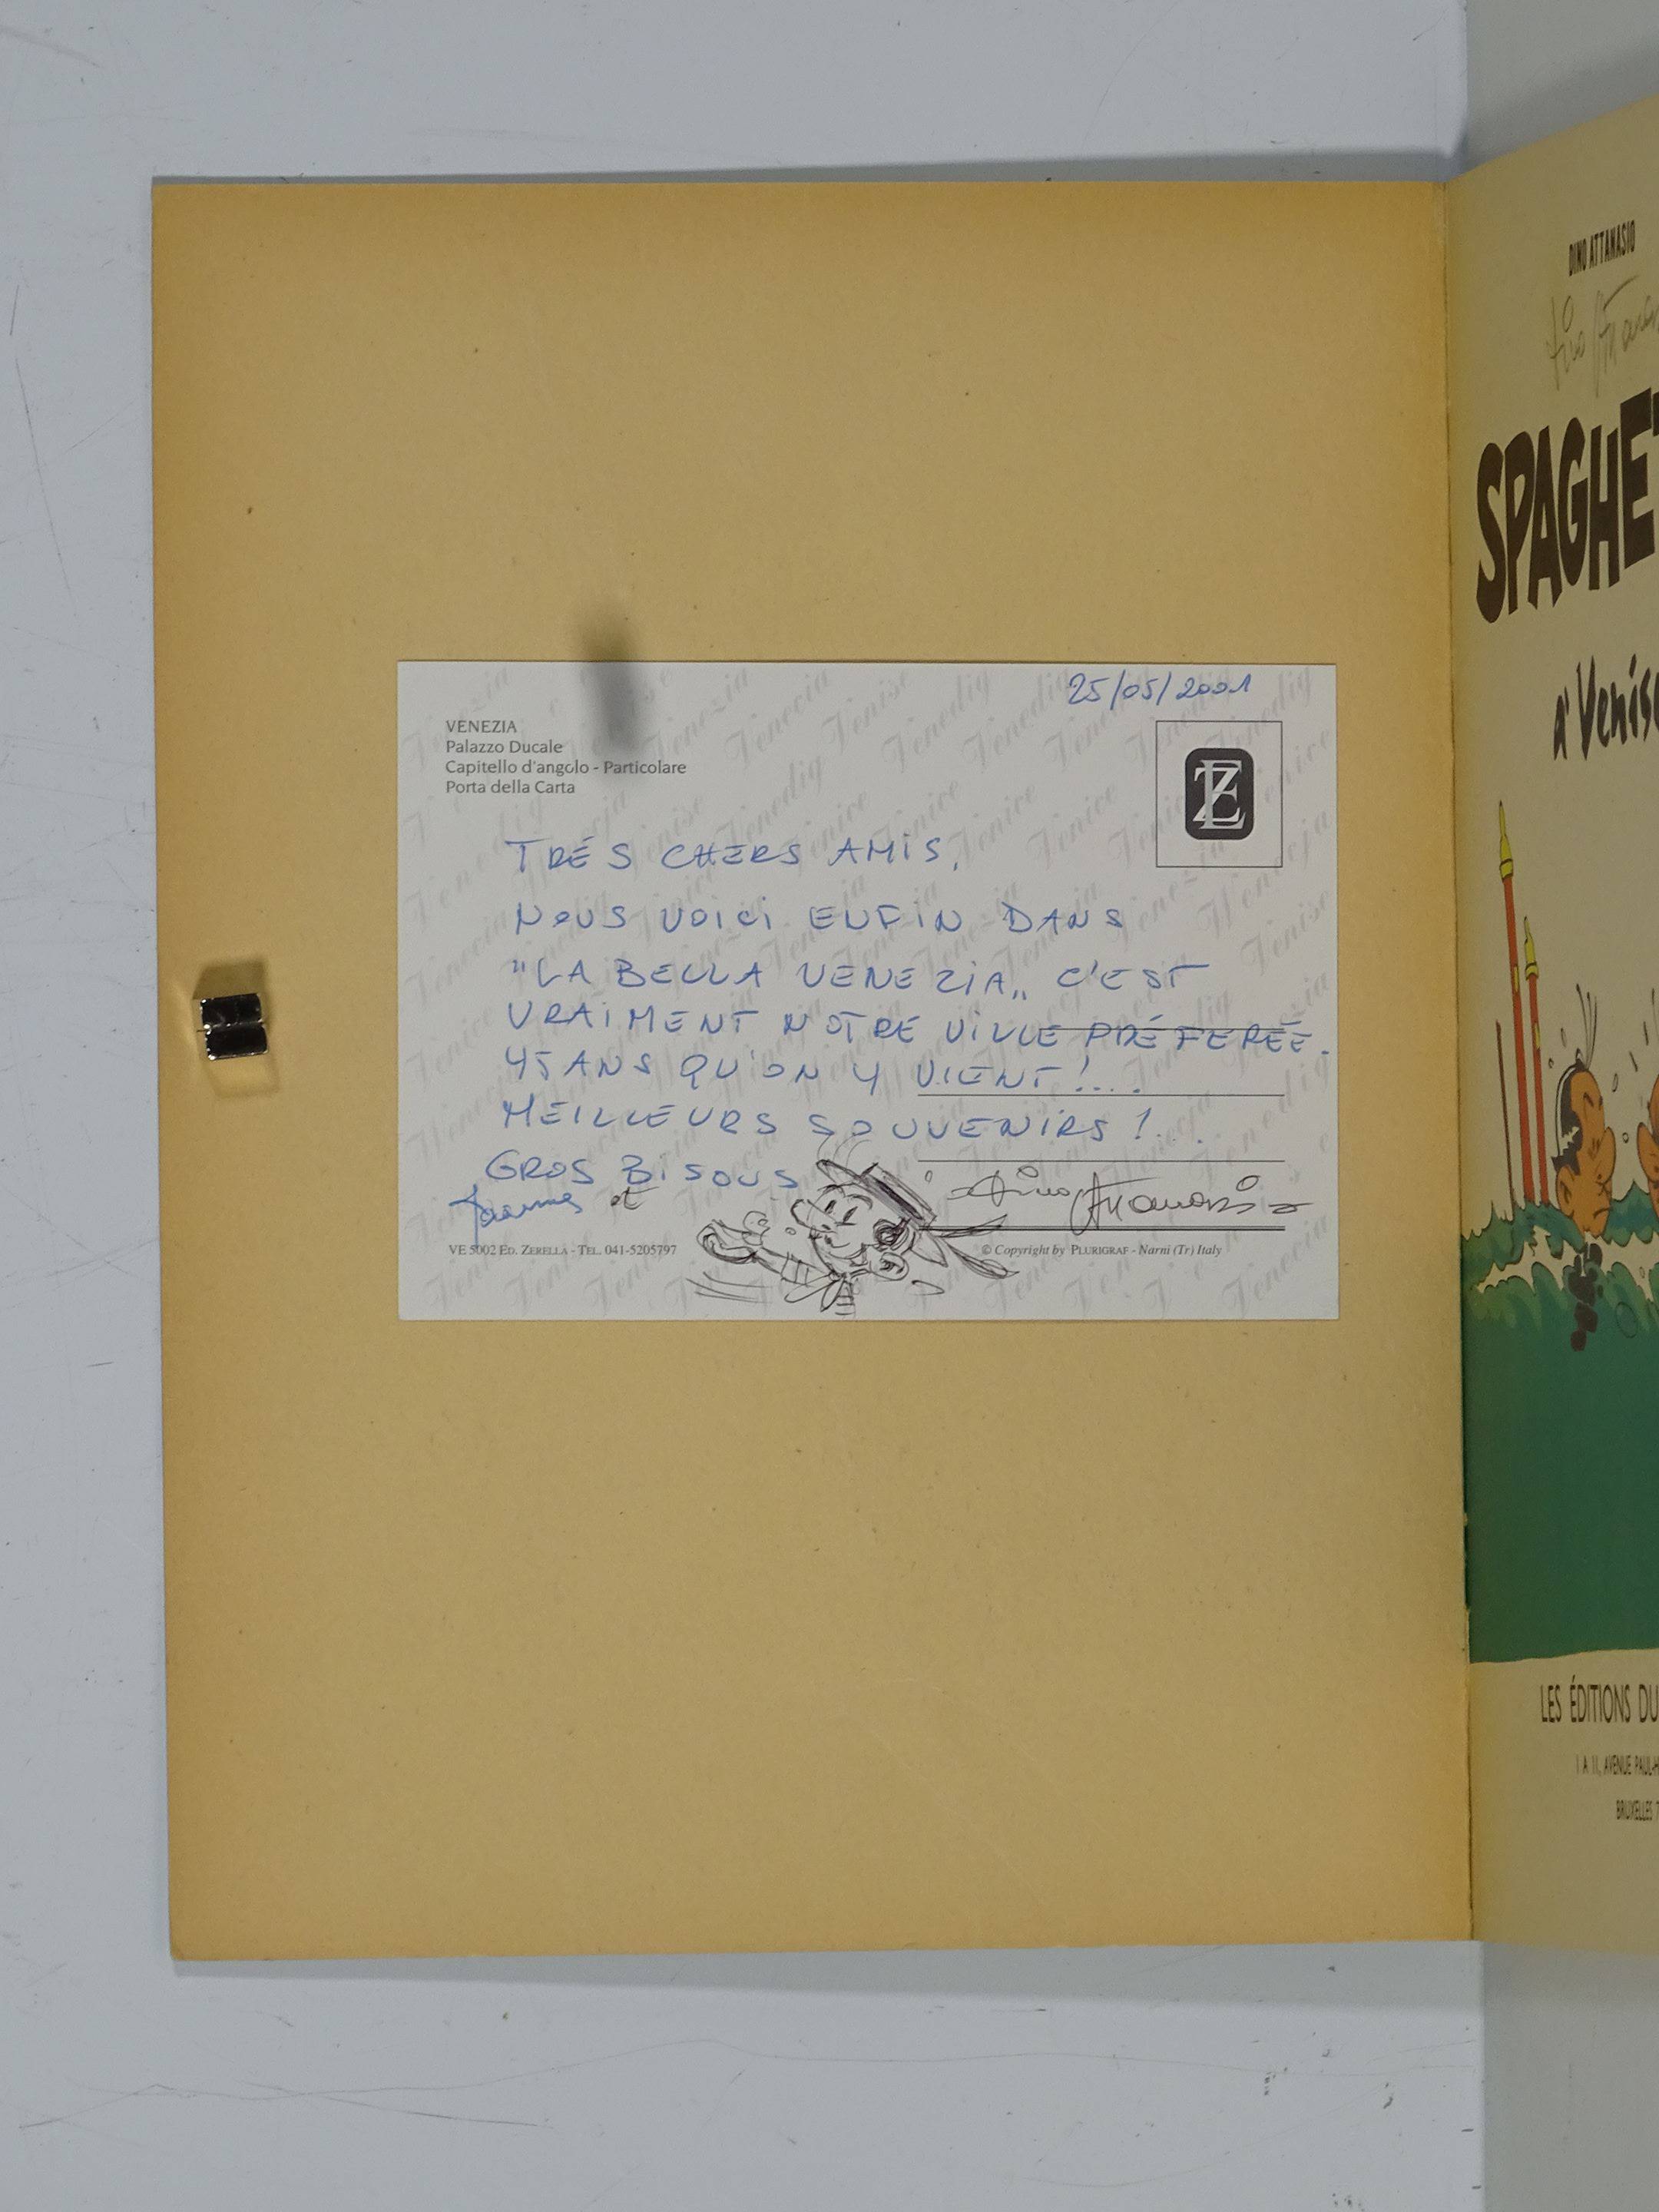 25/05/2001
VENEZIA
Palazzo Ducale
Capitello d'angolo - Particolare
Porta della Carta
TRÉS CHERS AMIS,
NOUS VOICI ENFIN DANS
"LA BELLA VENEZIA„ C'EST
VRAIMENT NOTRE VILLE PRÉFERÉE.
45 ANS QU'ON Y VIENT!...
MEILLEURS SOUVENIRS!...
GROS BISOUS
et
Dino Attanasio
VE 5002 ED. ZERELLA - TEL. 041-5205797
© Copyright by PLURIGRAF - Narni (Tr) Italy
DINO ATTANASIO
SPAGHET
à Venise
LES ÉDITIONS DU
1 A 11, AVENUE PAUL-H
BRUXELLES